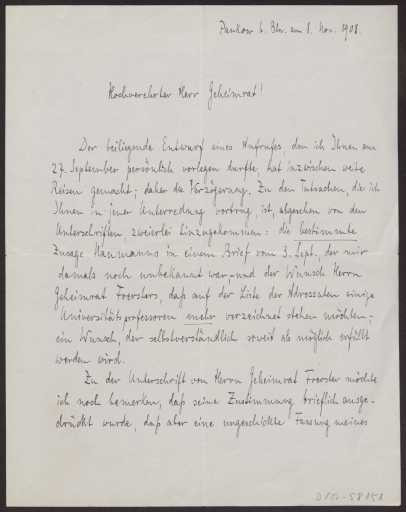 Pankow b. Bln. am 8. Nov. 1908.
Hochverehrter Herr Geheimrat!
Der beiliegende Entwurf eines Aufrufes, den ich Ihnen am
27. September persönlich vorlegen durfte, hat inzwischen weite
Reisen gemacht; daher die Verzögerung. Zu den Tatsachen, die ich
Ihnen in jener Unterredung vortrug, ist, abgesehen von den
Unterschriften zweierlei hinzugekommen: die bestimmte
Zusage Naumanns in einem Brief vom 3. Sept., der mir
damals noch unbekannt war, und der Wunsch Herrn
Geheimrat Foersters, daß auf der Liste der Adressaten einige
Universitätsprofessoren mehr verzeichnet stehen möchten;
ein Wunsch, der selbstverständlich soweit als möglich erfüllt
werden wird.
Zu der Unterschrift von Herrn Geheimrat Foerster möchte
ich noch bemerken, daß seine Zustimmung brieflich ausge-
drückt wurde, daß aber eine ungeschickte Fassung meines